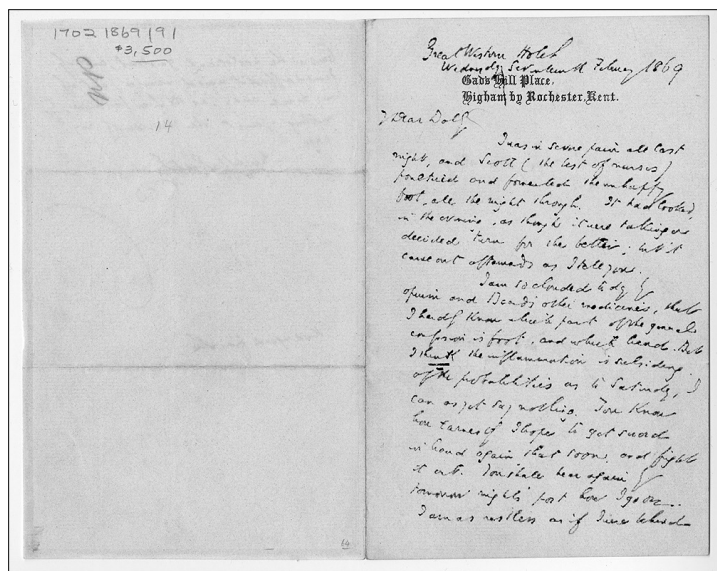 1702 1869 191
$3,500
14
Great Western Hotel
Wednesday Seventeenth February 1869
Gad's Hill Place,
Higham by Rochester, Kent.
My Dear Dolby
I was in severe pain all last
night, and Scott (the best of nurses)
poulticed and fomented the unhappy
foot, all the night through. It had looked,
in the evening, as though it were taking a
decided turn for the better; but it
came out afterwards as I tell you.
I am so clouded today by
opium and Beard's other medicines, that
I hardly know which part of the general
confusion is foot, and which head. But
I think the inflammation is subsiding.
Of the probabilities as to Saturday, I
can as yet say nothing. You know
how earnestly I hope to get sword
in hand again that soon, and fight
it out. You shall hear again by
tomorrow night's post how I go on.
I am as restless as if I were behind